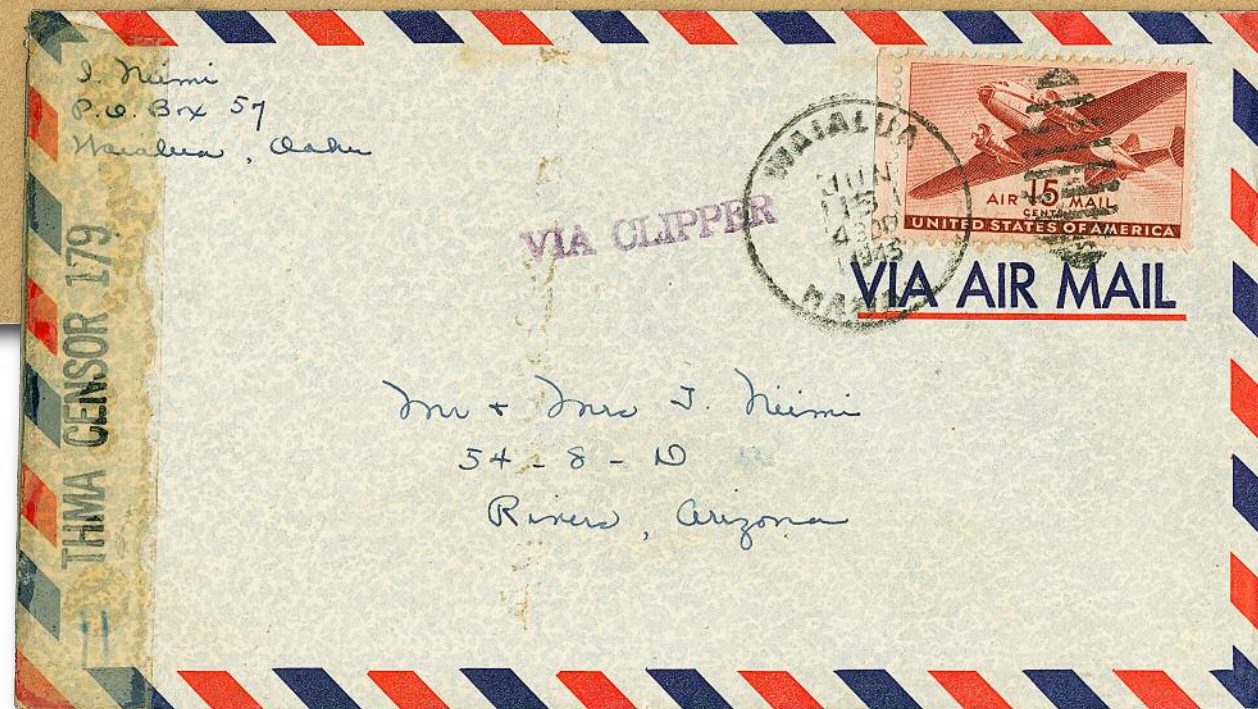 I. Niimi
P.O. Box 57
Waialua, Oahu
THMA CENSOR 179
VIA CLIPPER
WAIALUA
JUN
15
1943
AIR 15 MAIL
CENTS
UNITED STATES OF AMERICA
VIA AIR MAIL
Mr + Mrs I. Niimi
54-8-D
Rivers, Arizona